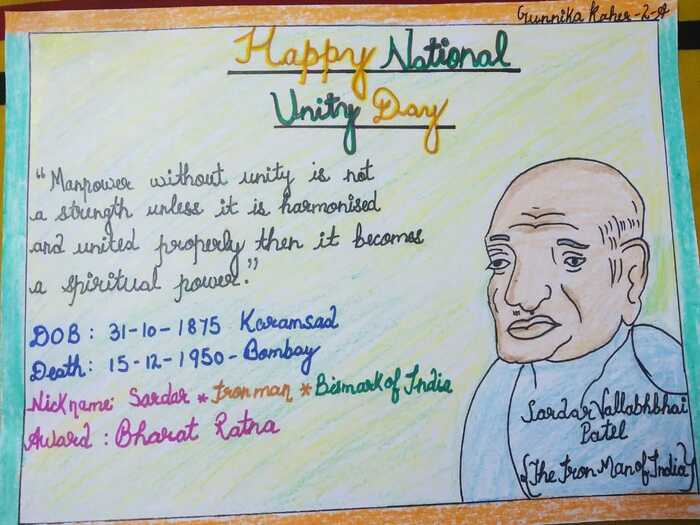 Gunnika Kaher-2-A
Happy National
Unity Day
"Manpower without unity is not
a strength unless it is harmonised
and united properly then it becomes
a spiritual power."
DOB : 31-10-1875 Karamsad
Death: 15-12-1950-Bombay
Nickname: Sardar * Iron man * Bismark of India
Award : Bharat Ratna
Sardar Vallabhbhai
Patel
{The Iron Man of India}